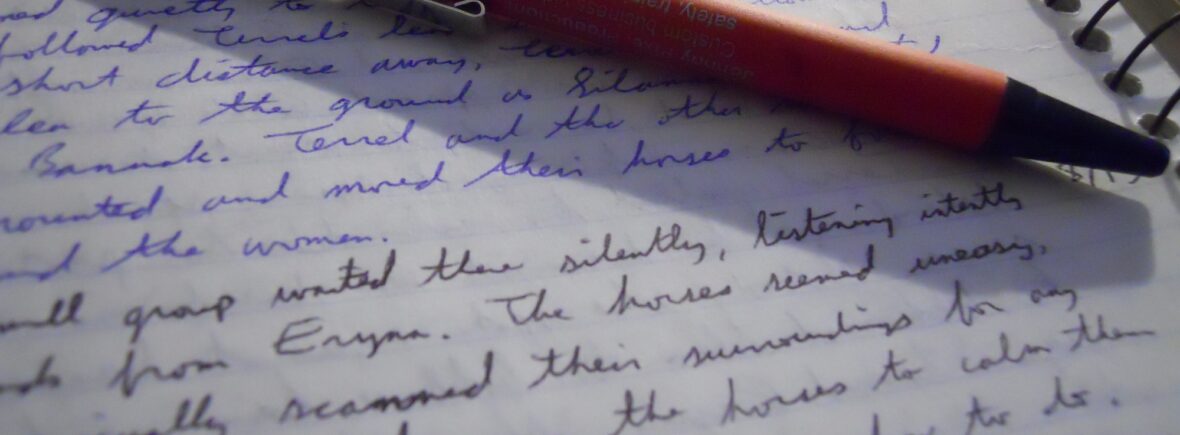 quietly to
followed Terrels lea
short distance away,
lea to the ground as Silam
Bannak. Terrel and the other
mounted and moved their horses to
and the women.
group waited there silently, listening intently
from Erynn. The horses seemed uneasy,
scanned their surroundings for any
the horses to calm them
to do.
Custom business
safety, trai